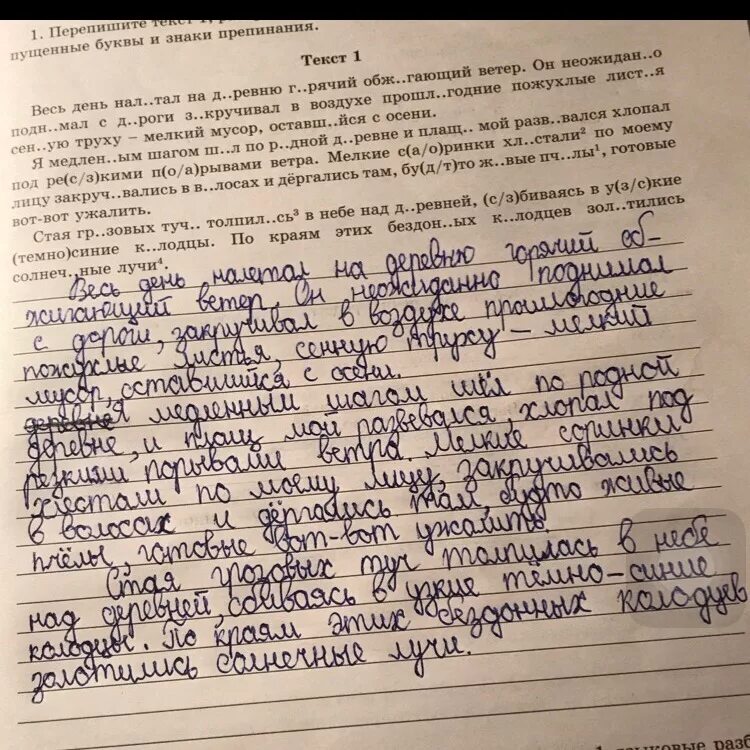 1. Перепишите текст 1,
пущенные буквы и знаки препинания.
Текст 1
Весь день нал..тал на д..ревню г..рячий обж..гающий ветер. Он неожидан..о
подн..мал с д..роги з..кручивал в воздухе прошл..годние пожухлые лист..я
сен..ую труху – мелкий мусор, оставш..йся с осени.
Я медлен..ым шагом ш..л по р..дной д..ревне и плащ.. мой разв..вался хлопал
под ре(с/з)кими п(о/а)рывами ветра. Мелкие с(а/о)ринки хл..стали² по моему
лицу закруч..вались в в..лосах и дёргались там, бу(д/т)то ж..вые пч..лы¹, готовые
вот-вот ужалить.
Стая гр..зовых туч.. толпил..сь³ в небе над д..ревней, (с/з)биваясь в у(з/с)кие
(темно)синие к..лодцы. По краям этих бездон..ых к..лодцев зол..тились
солнеч..ные лучи⁴.
Весь день налетал на деревню горячий об-
жигающий ветер. Он неожиданно поднимал
с дороги, закручивал в воздухе прошлогодние
пожухлые листья, сенную труху – мелкий
мусор, оставшийся с осени.
Я медленным шагом шёл по родной
деревне, и плащ мой развевался, хлопал под
резкими порывами ветра. Мелкие соринки
хлестали по моему лицу, закручивались
в волосах и дёргались там, будто живые
пчёлы, готовые вот-вот ужалить.
Стая грозовых туч толпилась в небе
над деревней, сбиваясь в узкие тёмно-синие
колодцы. По краям этих бездонных колодцев
золотились солнечные лучи.